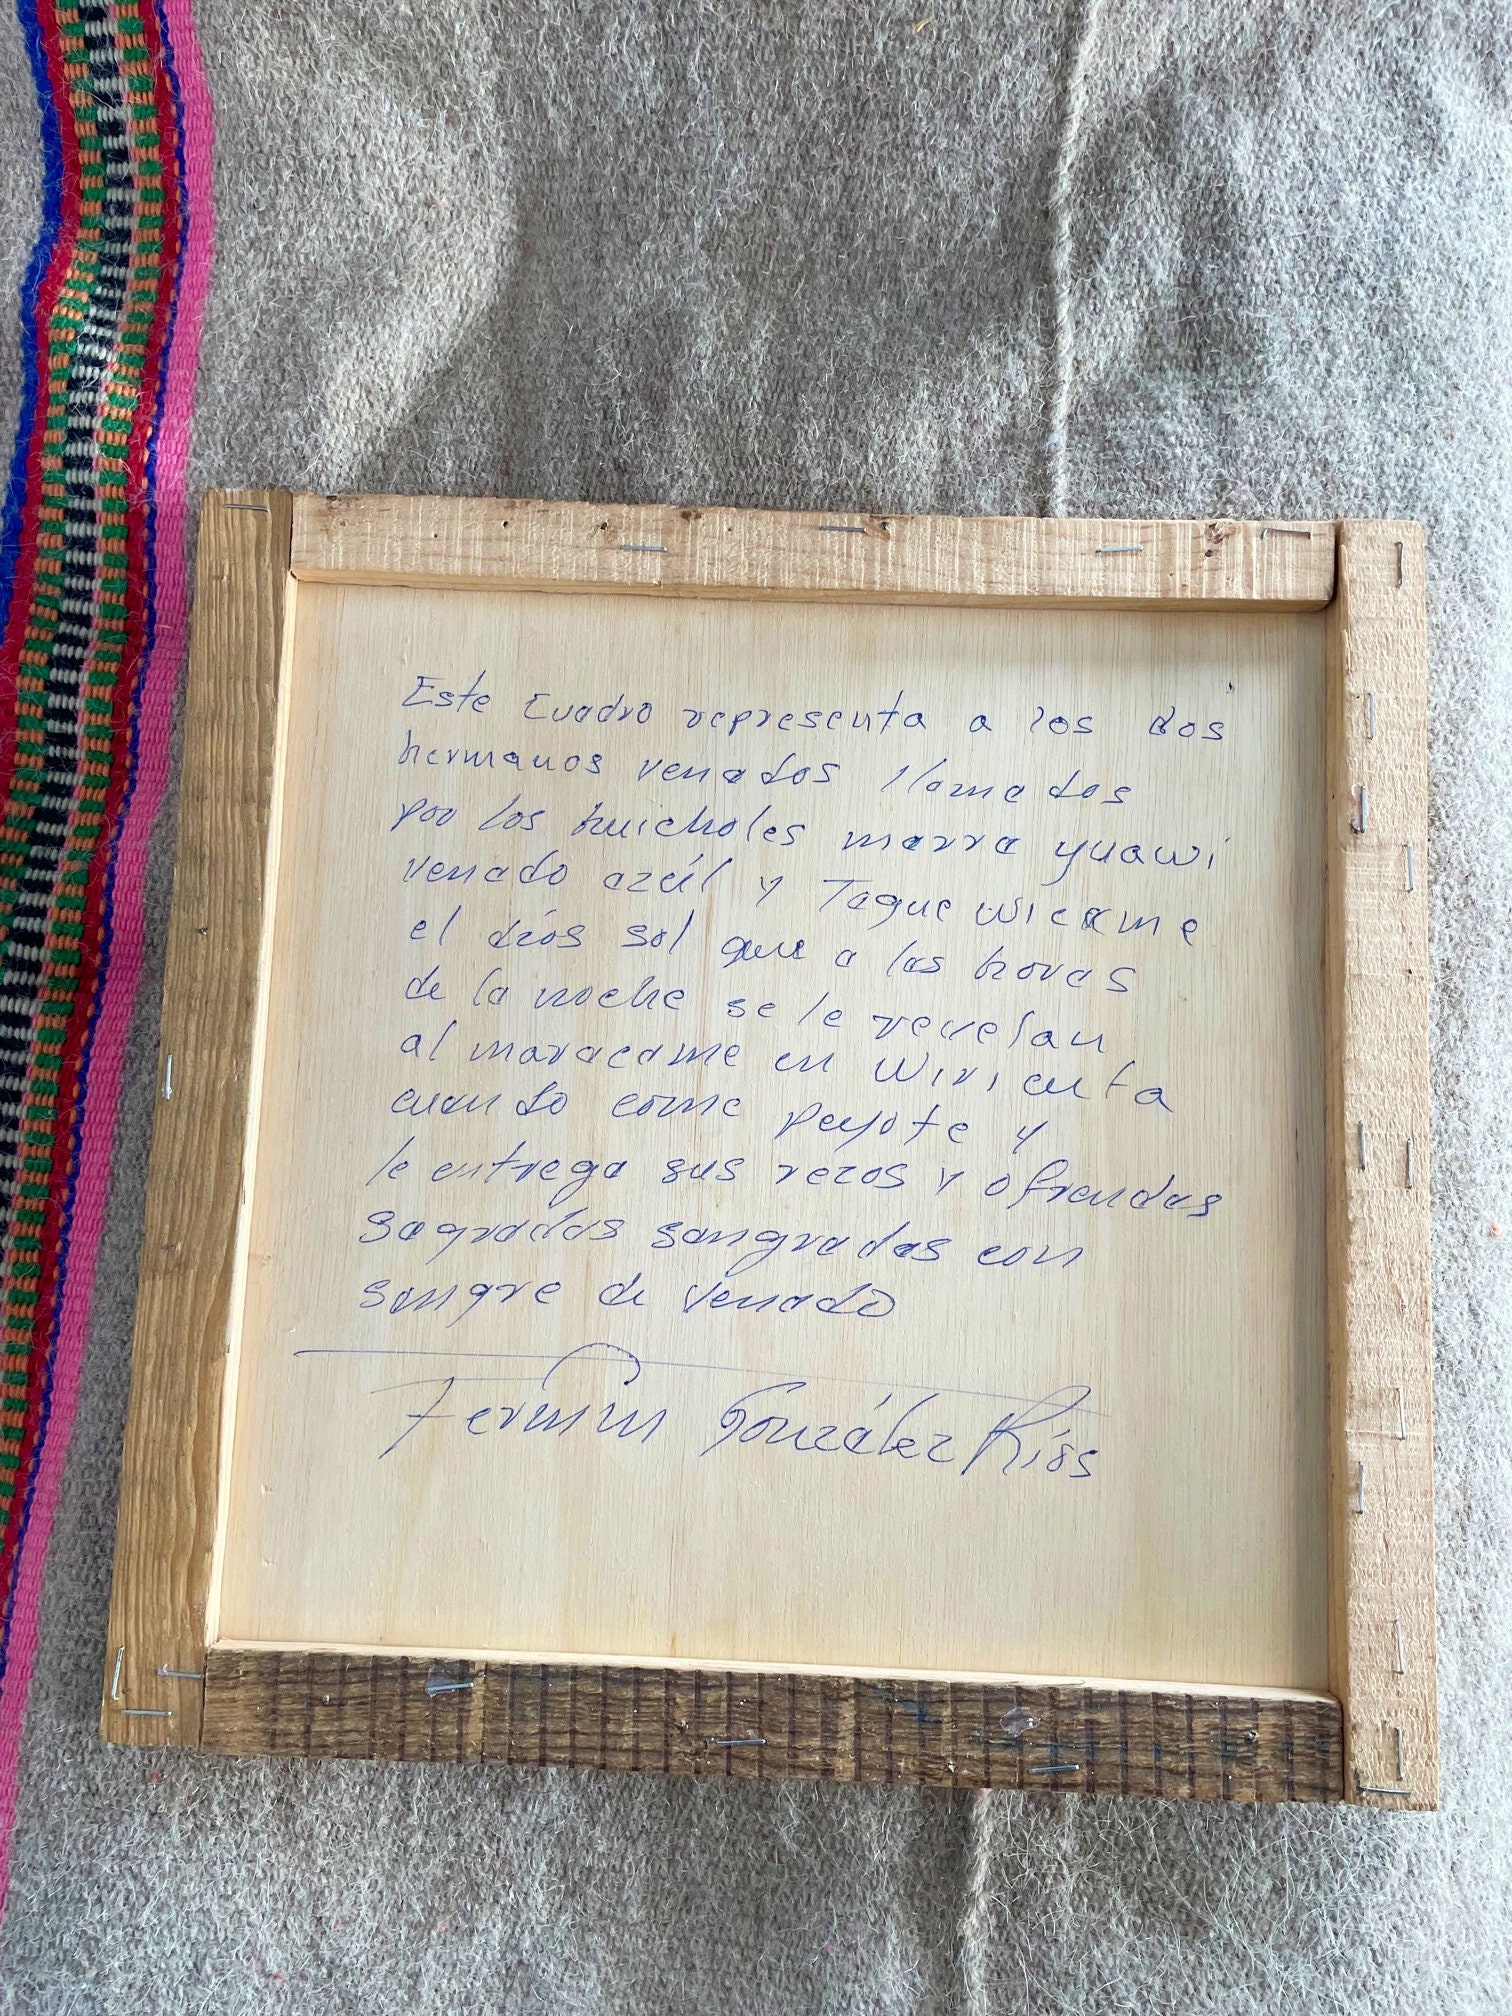 Este Cuadro representa a los dos
hermanos venados llamados
por los huicholes marra yuawi
venado azúl y Taque wicame
el dios sol que a las horas
de la noche se le revelan
al maracame en Wirienta
cuando come peyote y
le entrega sus rezos y ofrendas
sagradas sangradas con
sangre de venado
Fermin González Ríos